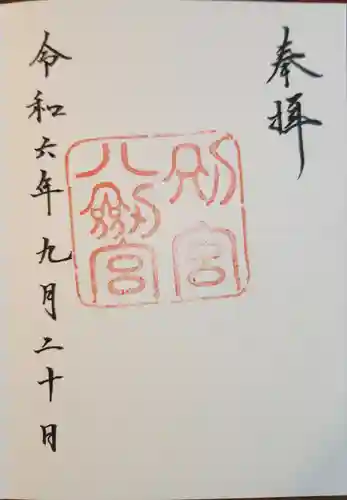 奉拝
別宮
八劔宮
令和六年九月二十日